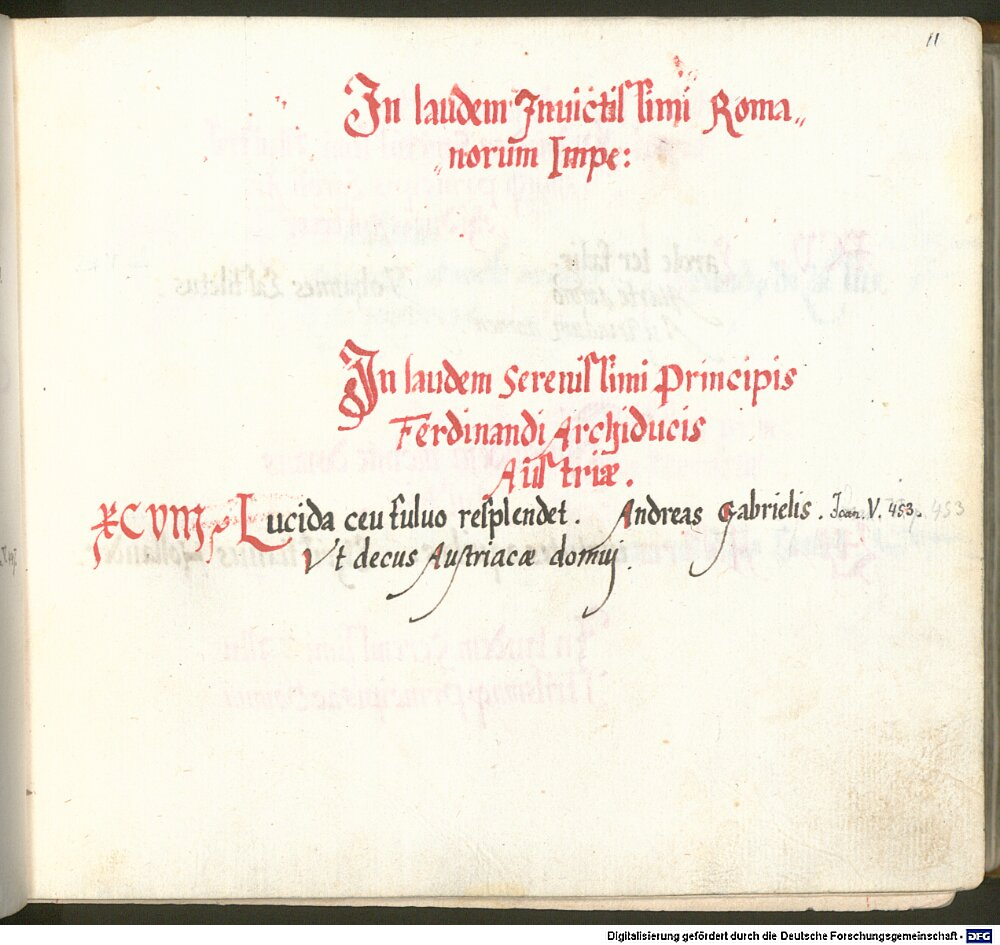 11
In laudem Inuictissimi Roma„
„norum Impe:
In laudem Serenissimi Principis
Ferdinandi Archiducis
Austriæ.
XCVIII. Lucida ceu fuluo resplendet. Andreas Gabrielis. Joan. V. 453. 453
Vt decus Austriacæ domuj.
Digitalisierung gefördert durch die Deutsche Forschungsgemeinschaft - DFG